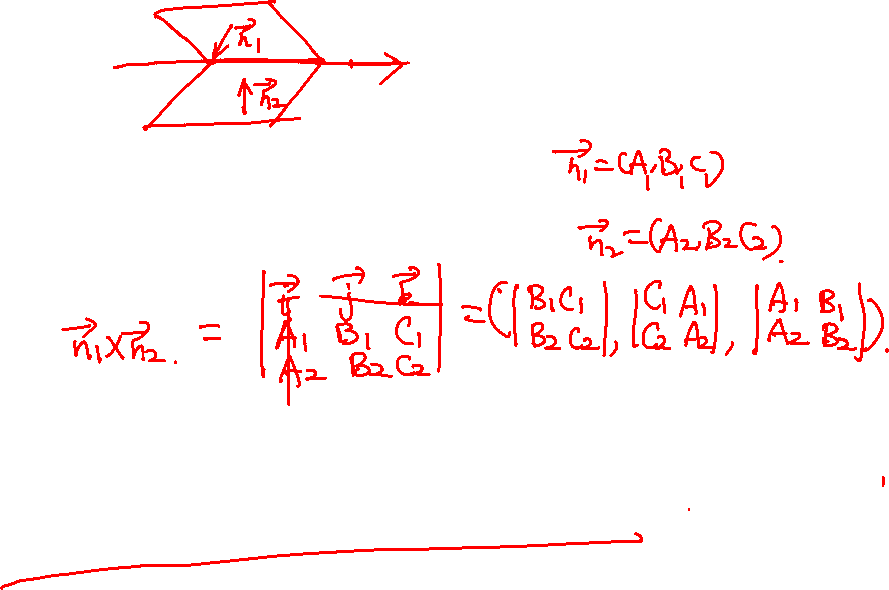 n⃗₁
n⃗₂
n⃗₁=(A₁,B₁,C₁)
n⃗₂=(A₂,B₂C₂).
n⃗₁×n⃗₂. = |i⃗ j⃗ k⃗; A₁ B₁ C₁; A₂ B₂ C₂| = (|B₁ C₁; B₂ C₂|, |C₁ A₁; C₂ A₂|, |A₁ B₁; A₂ B₂|).